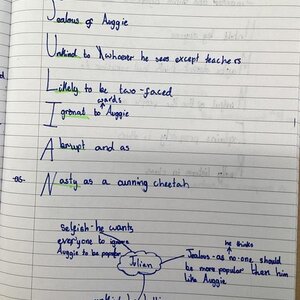 Jealous of Auggie
Unkind to whoever he sees except teachers
Likely to be two-faced
wards
Ignorat to Auggie
Abrupt and as
Nasty as a cunning cheetah
selfish - he wants
everyone to ignore
Auggie to be popular
Julian
he thinks
Jealous - as no-one should
be more popular then him
like Auggie